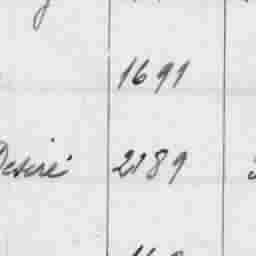 1691
Desiré 2189